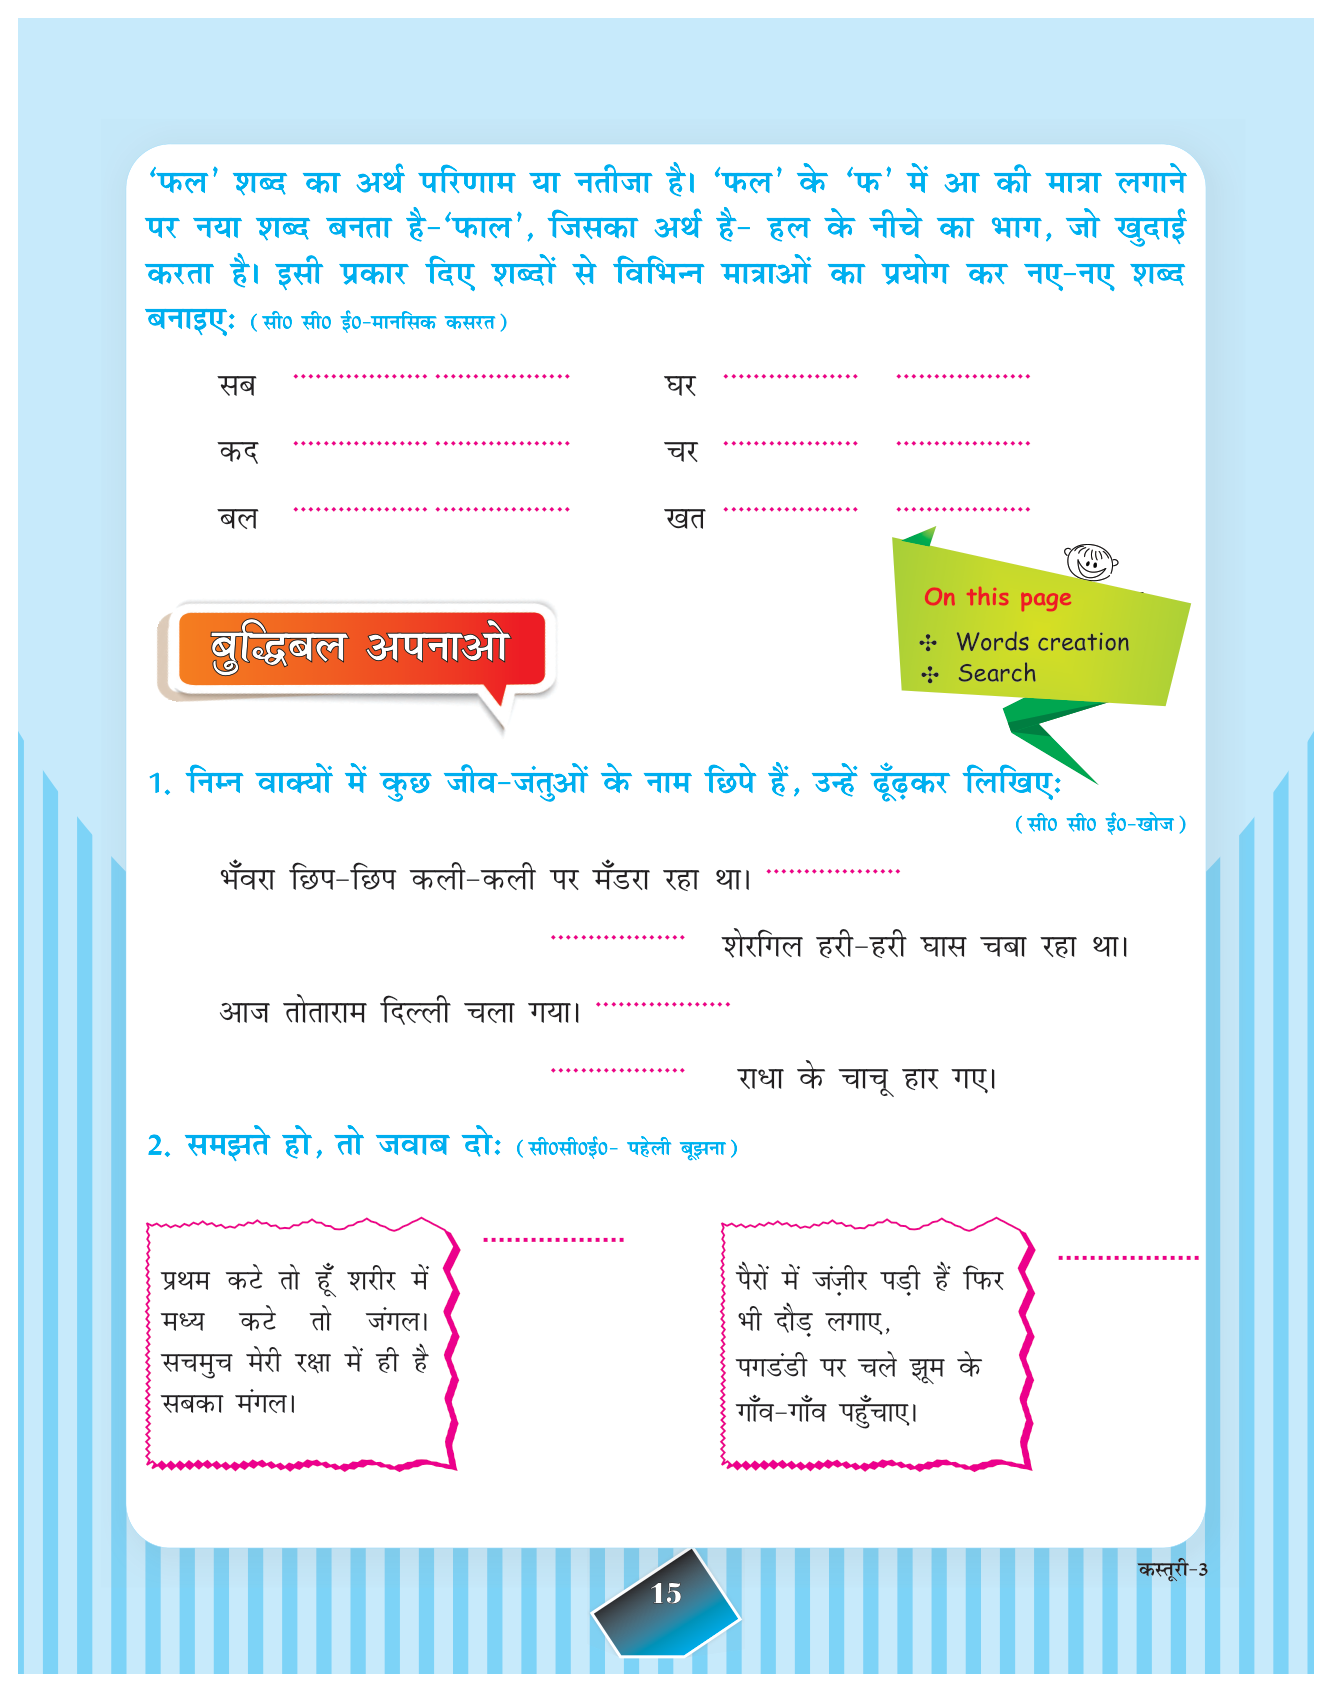 ‘फल’ शब्द का अर्थ परिणाम या नतीजा है। ‘फल’ के ‘फ’ में आ की मात्रा लगाने
पर नया शब्द बनता है-‘फाल’, जिसका अर्थ है- हल के नीचे का भाग, जो खुदाई
करता है। इसी प्रकार दिए शब्दों से विभिन्न मात्राओं का प्रयोग कर नए-नए शब्द
बनाइए: (सी0 सी0 ई0-मानसिक कसरत)
सब .................. .................. घर .................. ..................
कद .................. .................. चर .................. ..................
बल .................. .................. खत .................. ..................
On this page
Words creation
Search
बुद्धिबल अपनाओ
1. निम्न वाक्यों में कुछ जीव-जंतुओं के नाम छिपे हैं, उन्हें ढूँढ़कर लिखिए:
(सी0 सी0 ई0-खोज)
भँवरा छिप-छिप कली-कली पर मँडरा रहा था। ..................
.................. शेरगिल हरी-हरी घास चबा रहा था।
आज तोताराम दिल्ली चला गया। ..................
.................. राधा के चाचू हार गए।
2. समझते हो, तो जवाब दो: (सी0सी0ई0- पहेली बूझना)
प्रथम कटे तो हूँ शरीर में
मध्य कटे तो जंगल।
सचमुच मेरी रक्षा में ही है
सबका मंगल।
..................
पैरों में जंज़ीर पड़ी हैं फिर
भी दौड़ लगाए,
पगडंडी पर चले झूम के
गाँव-गाँव पहुँचाए।
..................
कस्तूरी-3
15